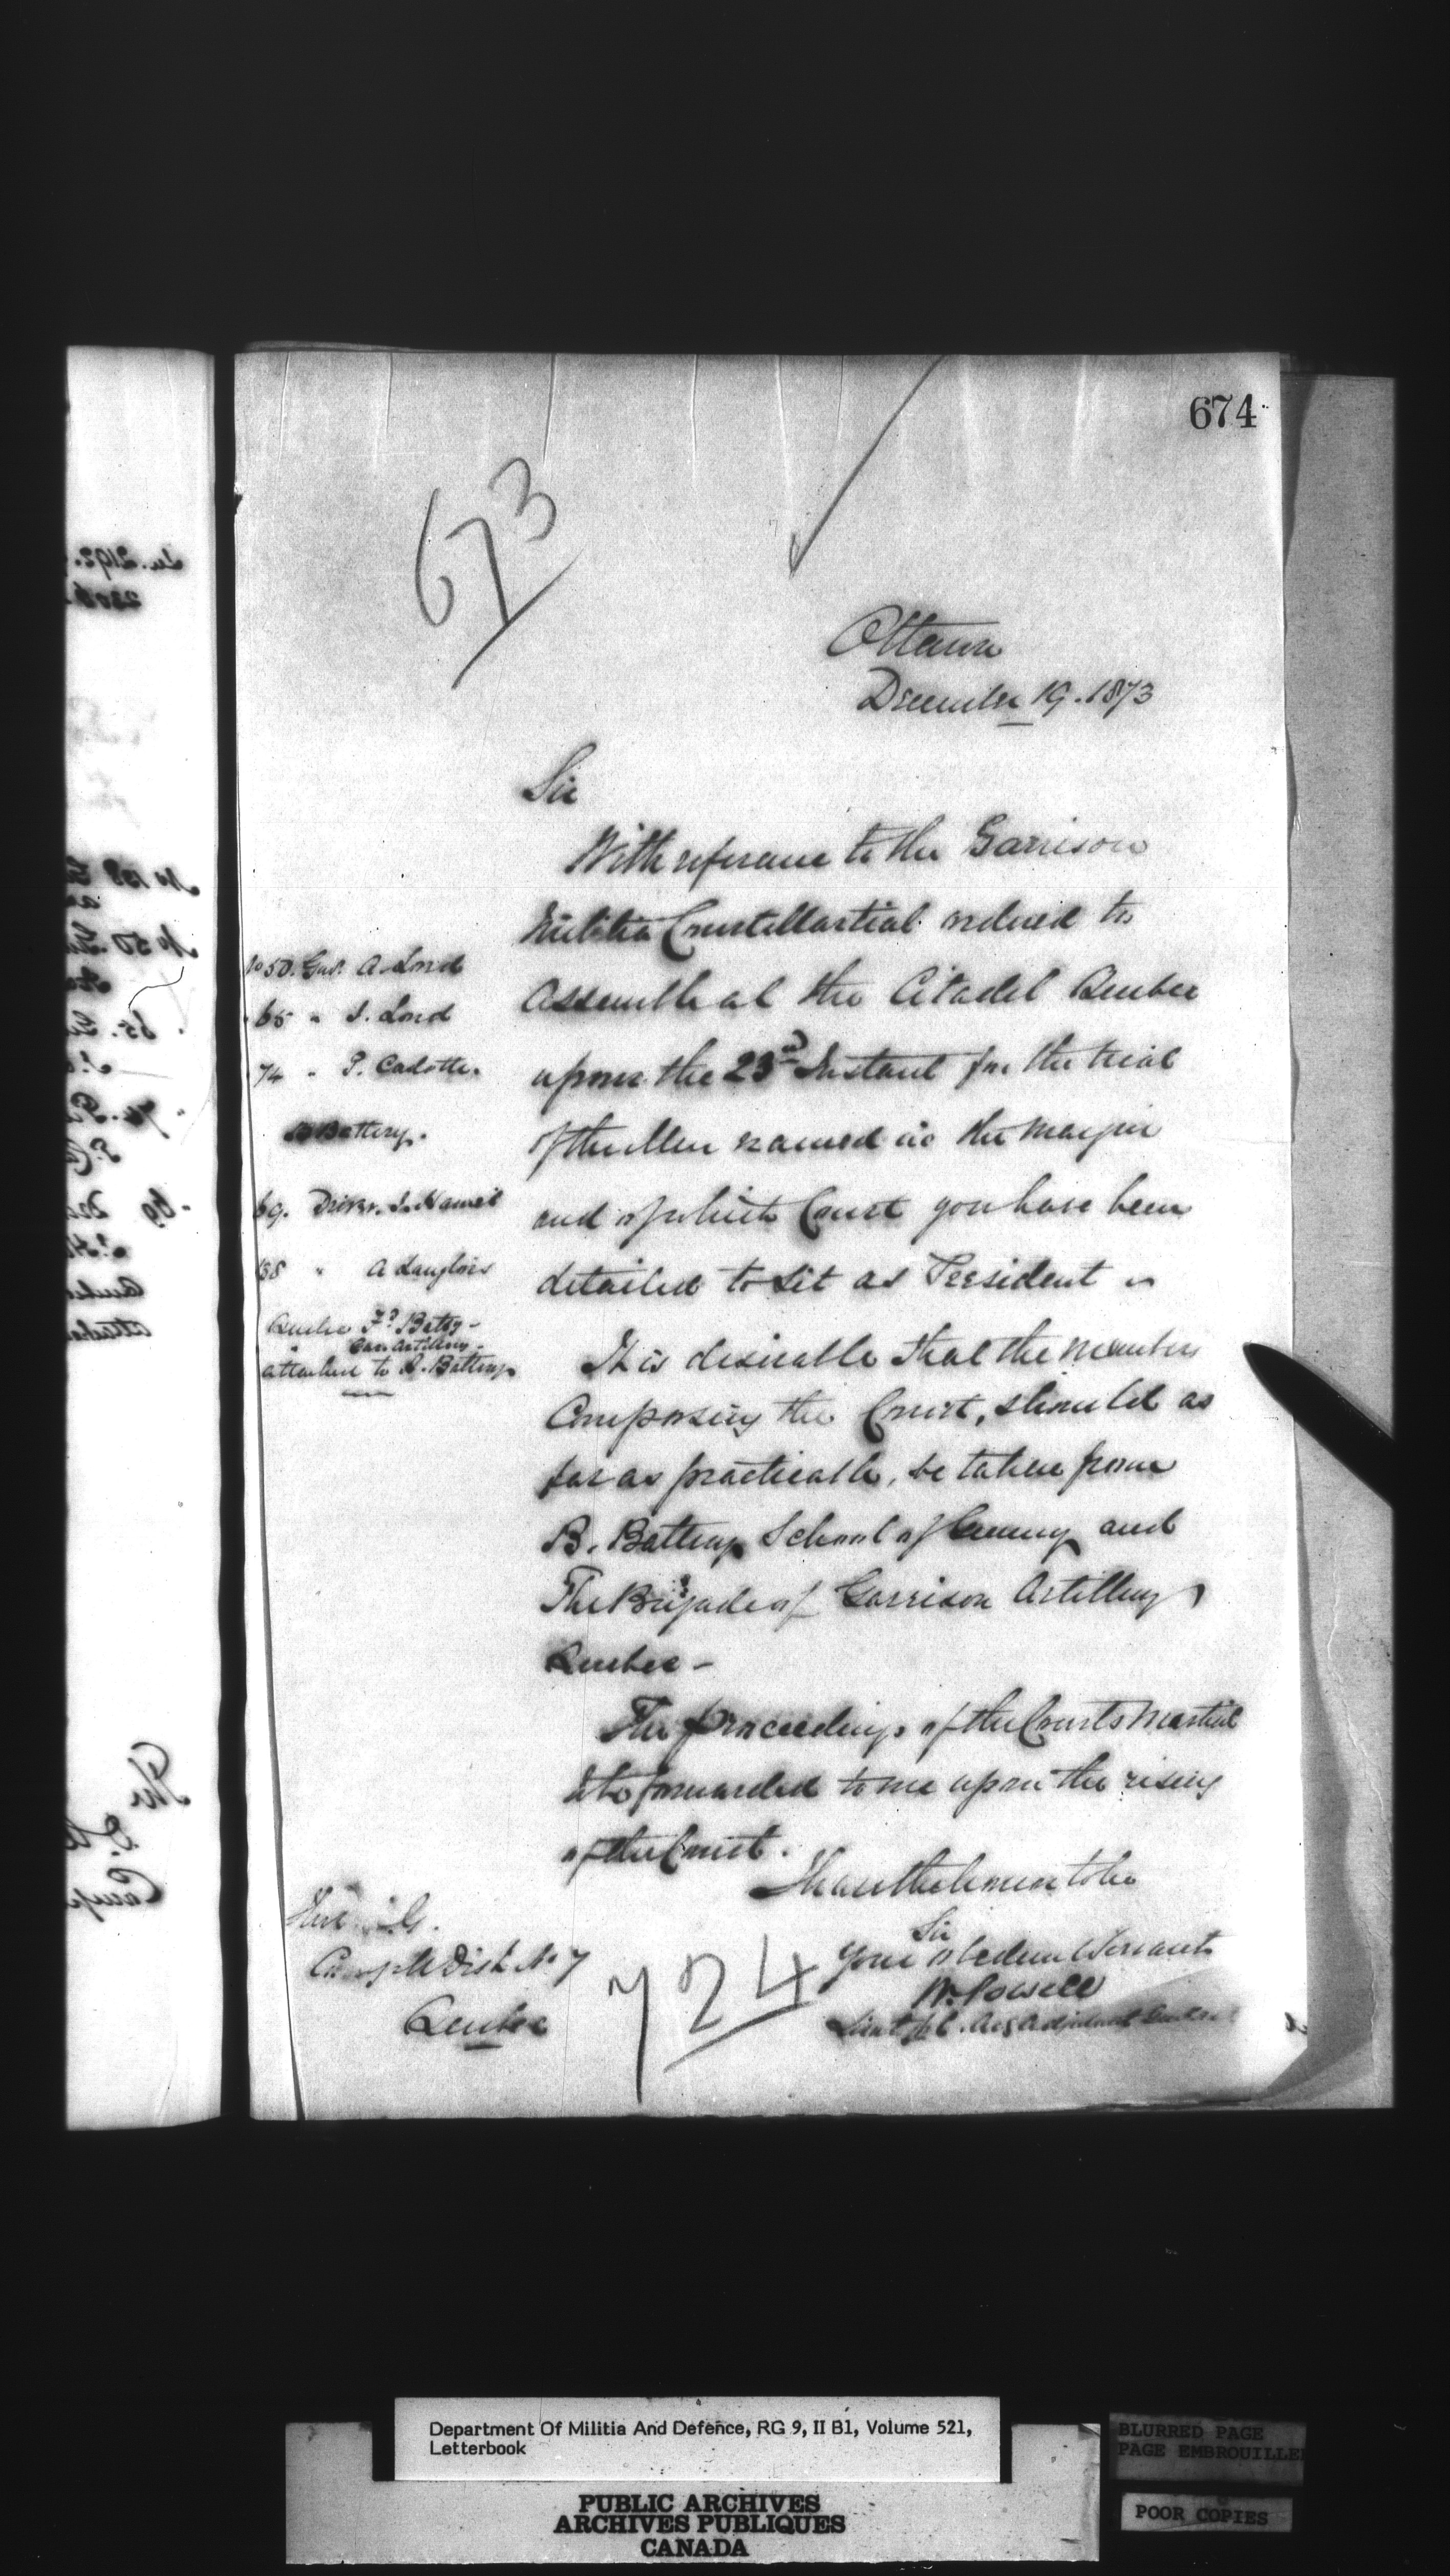 674
673
Ottawa
December 19. 1873
Sir
With reference to the Garrison
Militia Court Martial ordered to
assemble at the Citadel Quebec
upon the 23rd Instant for the trial
of the Men named in the margin
and of which Court you have been
detailed to sit as President
No 50. Gnr. A. Lord
65 " J. Lord
74 " P. Cadotte.
B Battery.
69. Driver. J. Hamel
138 " A Langlois
Quebec Fd. Batty -
Can. Artillery -
attached to B. Battery
It is desirable that the members
Composing the Court, should as
far as practicable, be taken from
B. Battery School of Gunnery and
The Brigade of Garrison Artillery
Quebec -
The proceedings of the Courts Martial
to be forwarded to me upon the rising
of the Court.
I have the honor to be
Sir
Your obedient Servant
W. Powell
Lieut Col. Actg Adjutant General
Dist No 7
Quebec
724
Department Of Militia And Defence, RG 9, II B1, Volume 521,
Letterbook
PUBLIC ARCHIVES
ARCHIVES PUBLIQUES
CANADA
BLURRED PAGE
PAGE EMBROUILLE
POOR COPIES